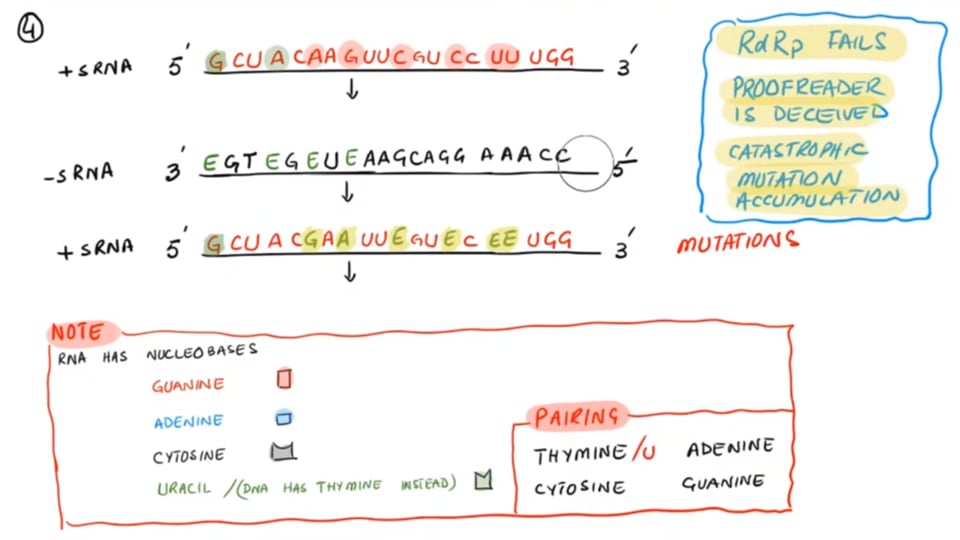 4
+sRNA 5' GCUACAAGUUCGUCCUU UGG 3'
↓
-sRNA 3' EGTEGEUEAAGCAGG AAACC 5'
↓
+sRNA 5' GCUACGAAUUEGUEC EE UGG 3'
↓
RdRp FAILS
PROOFREADER
IS DECEIVED
CATASTROPHIC
MUTATION
ACCUMULATION
MUTATIONS
NOTE
RNA HAS NUCLEOBASES
GUANINE
ADENINE
CYTOSINE
URACIL /(DNA HAS THYMINE INSTEAD)
PAIRING
THYMINE/U ADENINE
CYTOSINE GUANINE